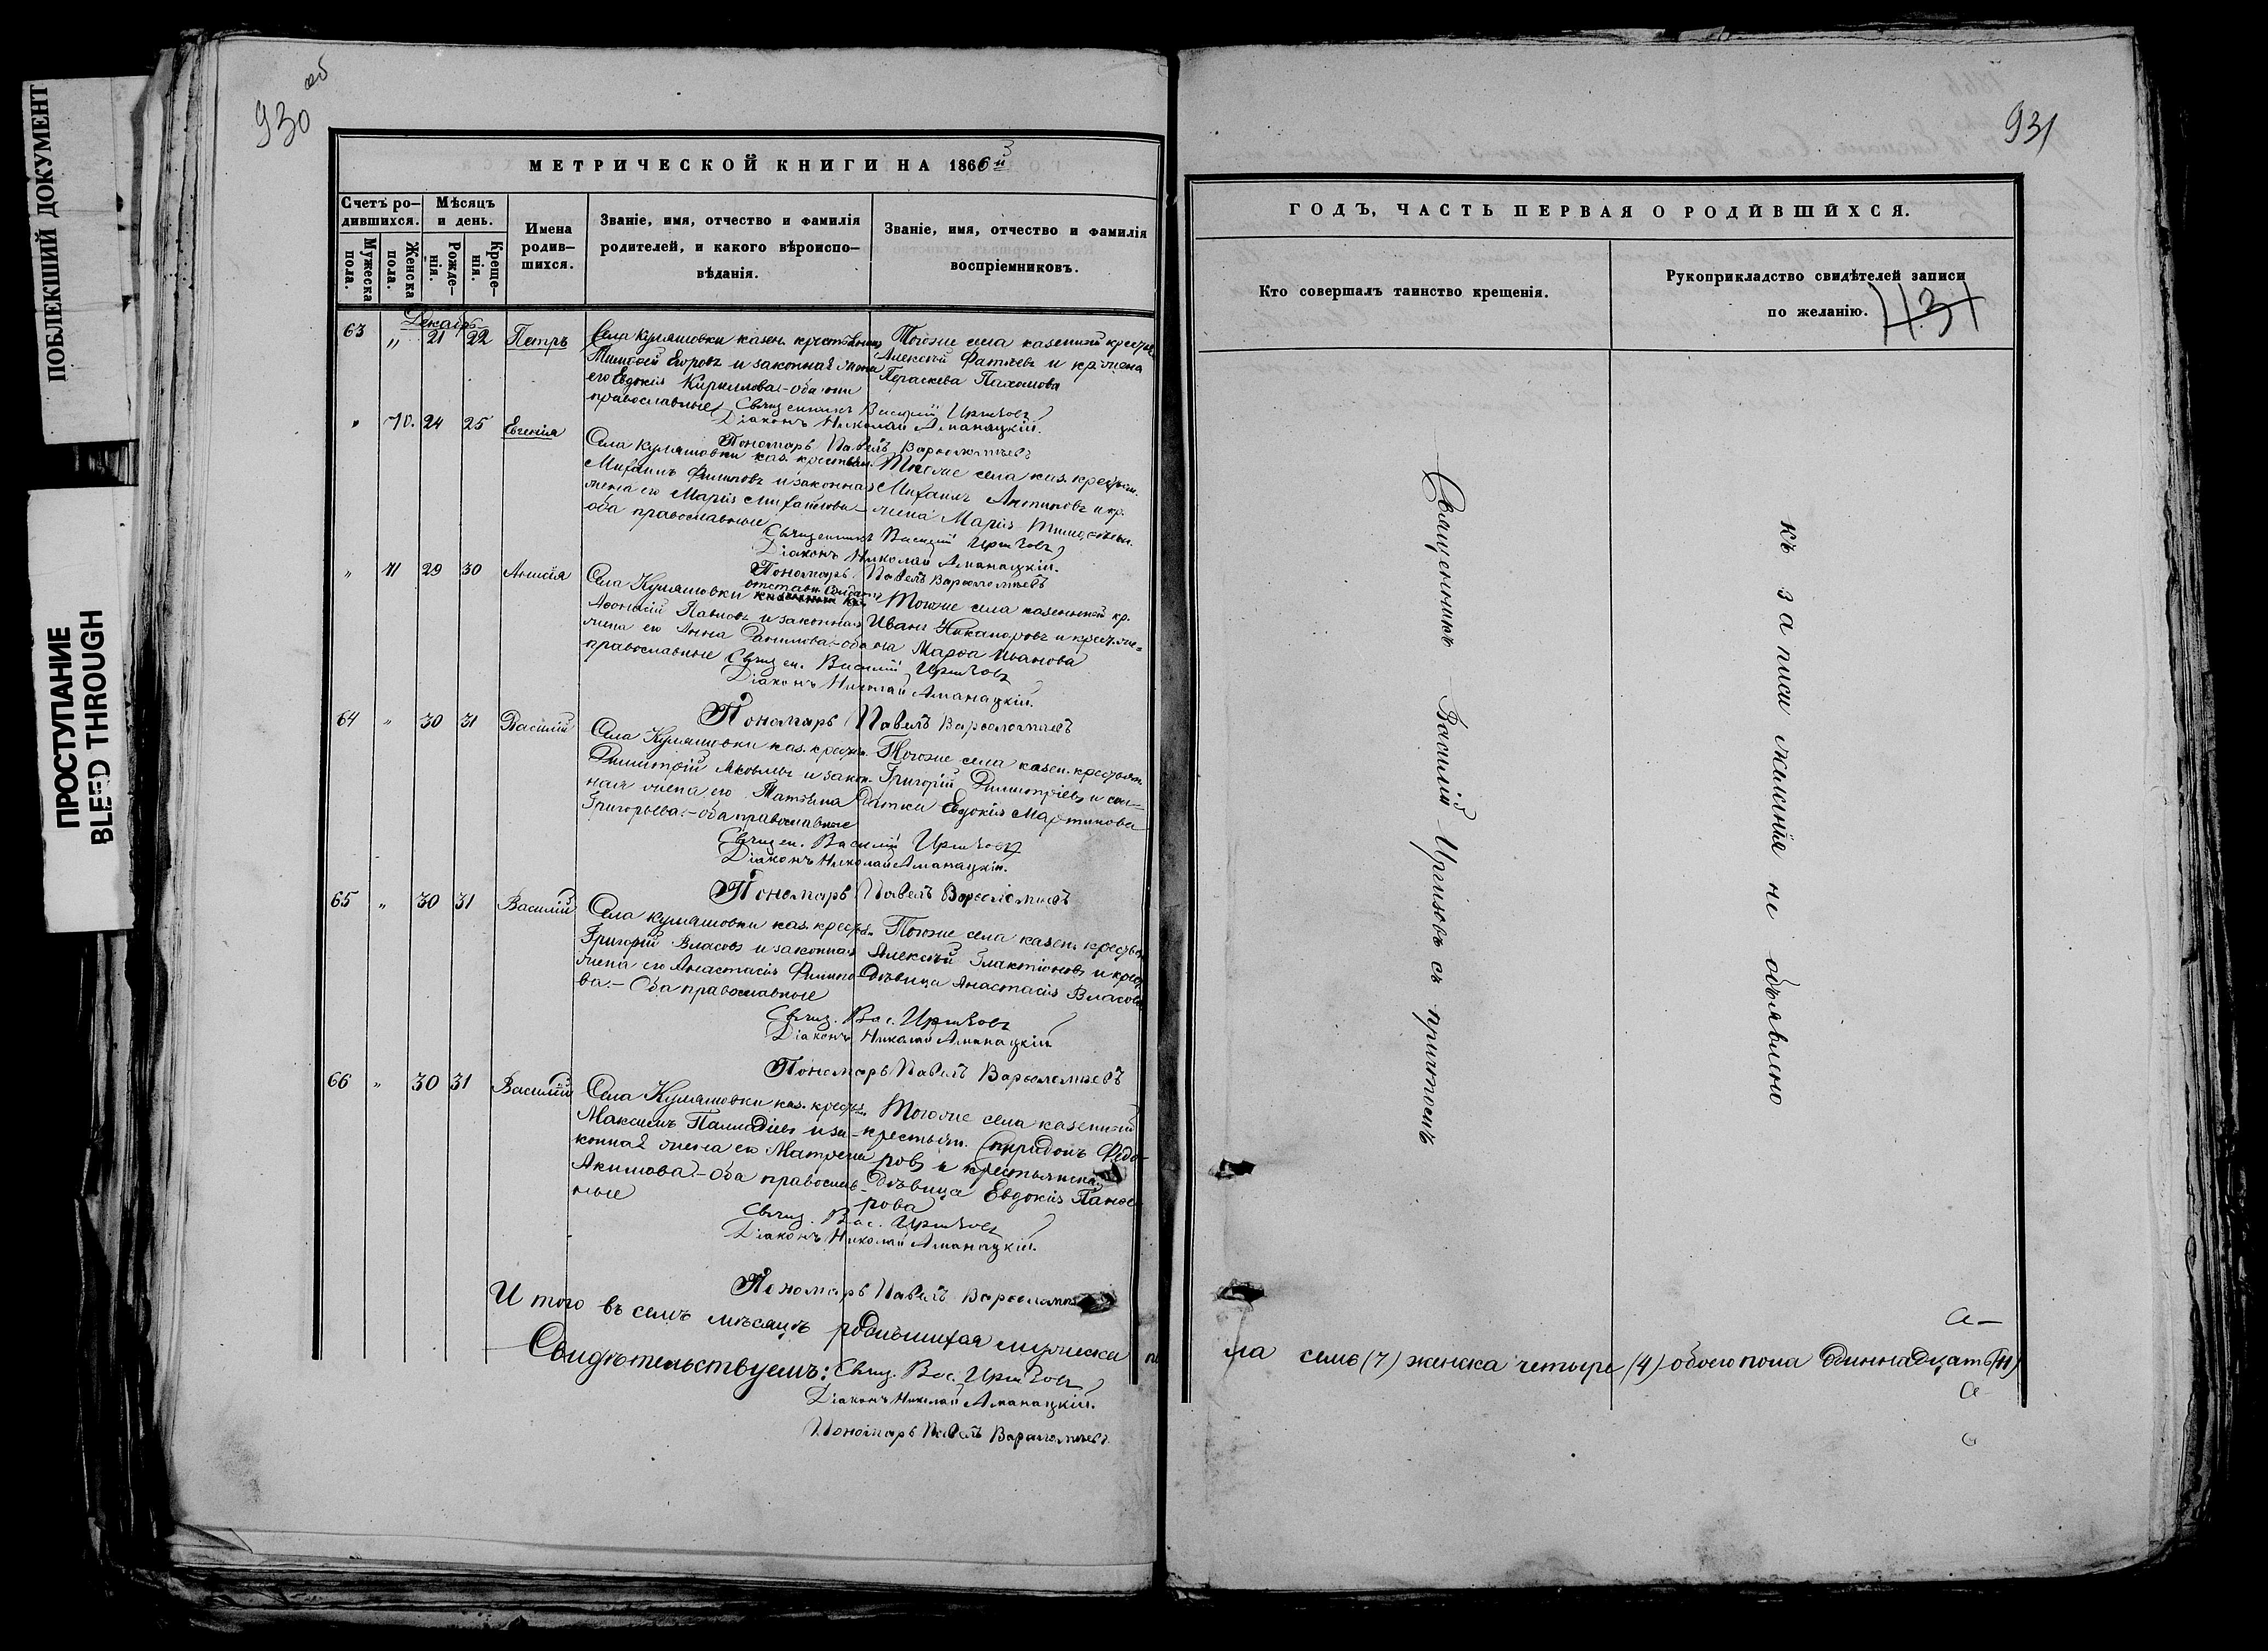 ПОБЛЕКШИЙ ДОКУМЕНТ
ПРОСТУПАНИЕ
BLED THROUGH
930 об
МЕТРИЧЕСКОЙ КНИГИ НА 1866й
Счетъ ро-
дившихся.
Мужеска
пола.
Женска
пола.
Мѣсяцъ
и день.
Рожде-
нія.
Креще-
нія.
Имена
родив-
шихся.
Званіе, имя, отчество и фамилія
родителей, и какого вѣроиспо-
вѣданія.
Званіе, имя, отчество и фамилія
воспріемниковъ.
Декабрь
63 " 21 22 Петръ
Села Куляшовки казен. крестьянинъ
Егоровъ и законная жена
его Евдокія Кириллова - оба они
православные
Тогоже села казенный крестьян.
Алексѣй Фатѣевъ и кр. жена
Параскева Пахомова
Священникъ Василій
Діаконъ Николай Аманацкій.
Пономарь Павелъ Варѳоломѣевъ
" 70. 24 25 Евгенія
Села Куляшовки каз. крестьян.
Михаилъ Филиповъ и законная
жена его Марія Михайлова -
оба православные
Тогоже села каз. крестьян.
Михаилъ Антиповъ и кр.
жена Марія Тимоѳеева.
Священникъ Василій
Діаконъ Николай Аманацкій.
Пономарь Павелъ Варѳоломѣевъ
" 71 29 30 Анисія
Села Куляшовки отставн. солдатъ
Аѳонасій Павловъ и законная
жена его Анна Данилова - оба
православные
Тогоже села казенной кр.
Иванъ Никаноровъ и крест. же-
на Марѳа Иванова
Священ. Василій
Діаконъ Николай Аманацкій.
Пономарь Павелъ Варѳоломѣевъ
64 " 30 31 Василій
Села Куляшовки каз. крестьян.
Димитрій Яковлевъ и закон-
ная жена его Татьяна
Григорьева. - оба православные
Тогоже села казен. крестьян.
Григорій Димитріевъ и сол-
датка Евдокія Мартинова
Священ. Василій
Діаконъ Николай Аманацкій.
Пономарь Павелъ Варѳоломѣевъ
65 " 30 31 Василій
Села Куляшовки каз. крестьян.
Григорій Власовъ и законная
жена его Анастасія Филипо-
ва. - Оба православные
Тогоже села казен. крестьян.
Алексѣй Галактіоновъ и крест.
дѣвица Анастасія Власова
Свящ. Вас.
Діаконъ Николай Аманацкій
Пономарь Павелъ Варѳоломѣевъ
66 " 30 31 Василій
Села Куляшовки каз. крестьян.
Максимъ Палладіевъ и за-
конная жена его Матрена
Акимова. - Оба православ-
ные
Тогоже села казенной
крестьян. Спиридонъ Федо-
ровъ и крестьянская
дѣвица Евдокія
рова
Свящ. Вас.
Діаконъ Николай Аманацкій.
Пономарь Павелъ
Итого въ семъ мѣсяцѣ родившихся мужеска по
Свидѣтельствуемъ: Свящ. Вас.
Діаконъ Николай Аманацкій.
Пономарь Павелъ Варѳоломѣевъ.
931
ГОДЪ, ЧАСТЬ ПЕРВАЯ О РОДИВШИХСЯ.
Кто совершалъ таинство крещенія.
Рукоприкладство свидѣтелей записи
по желанію.
431
Священникъ Василій съ причтомъ
къ записи жиланія не объявлено
ла семь (7) женска четыре (4) обоего пола одиннадцать (11)